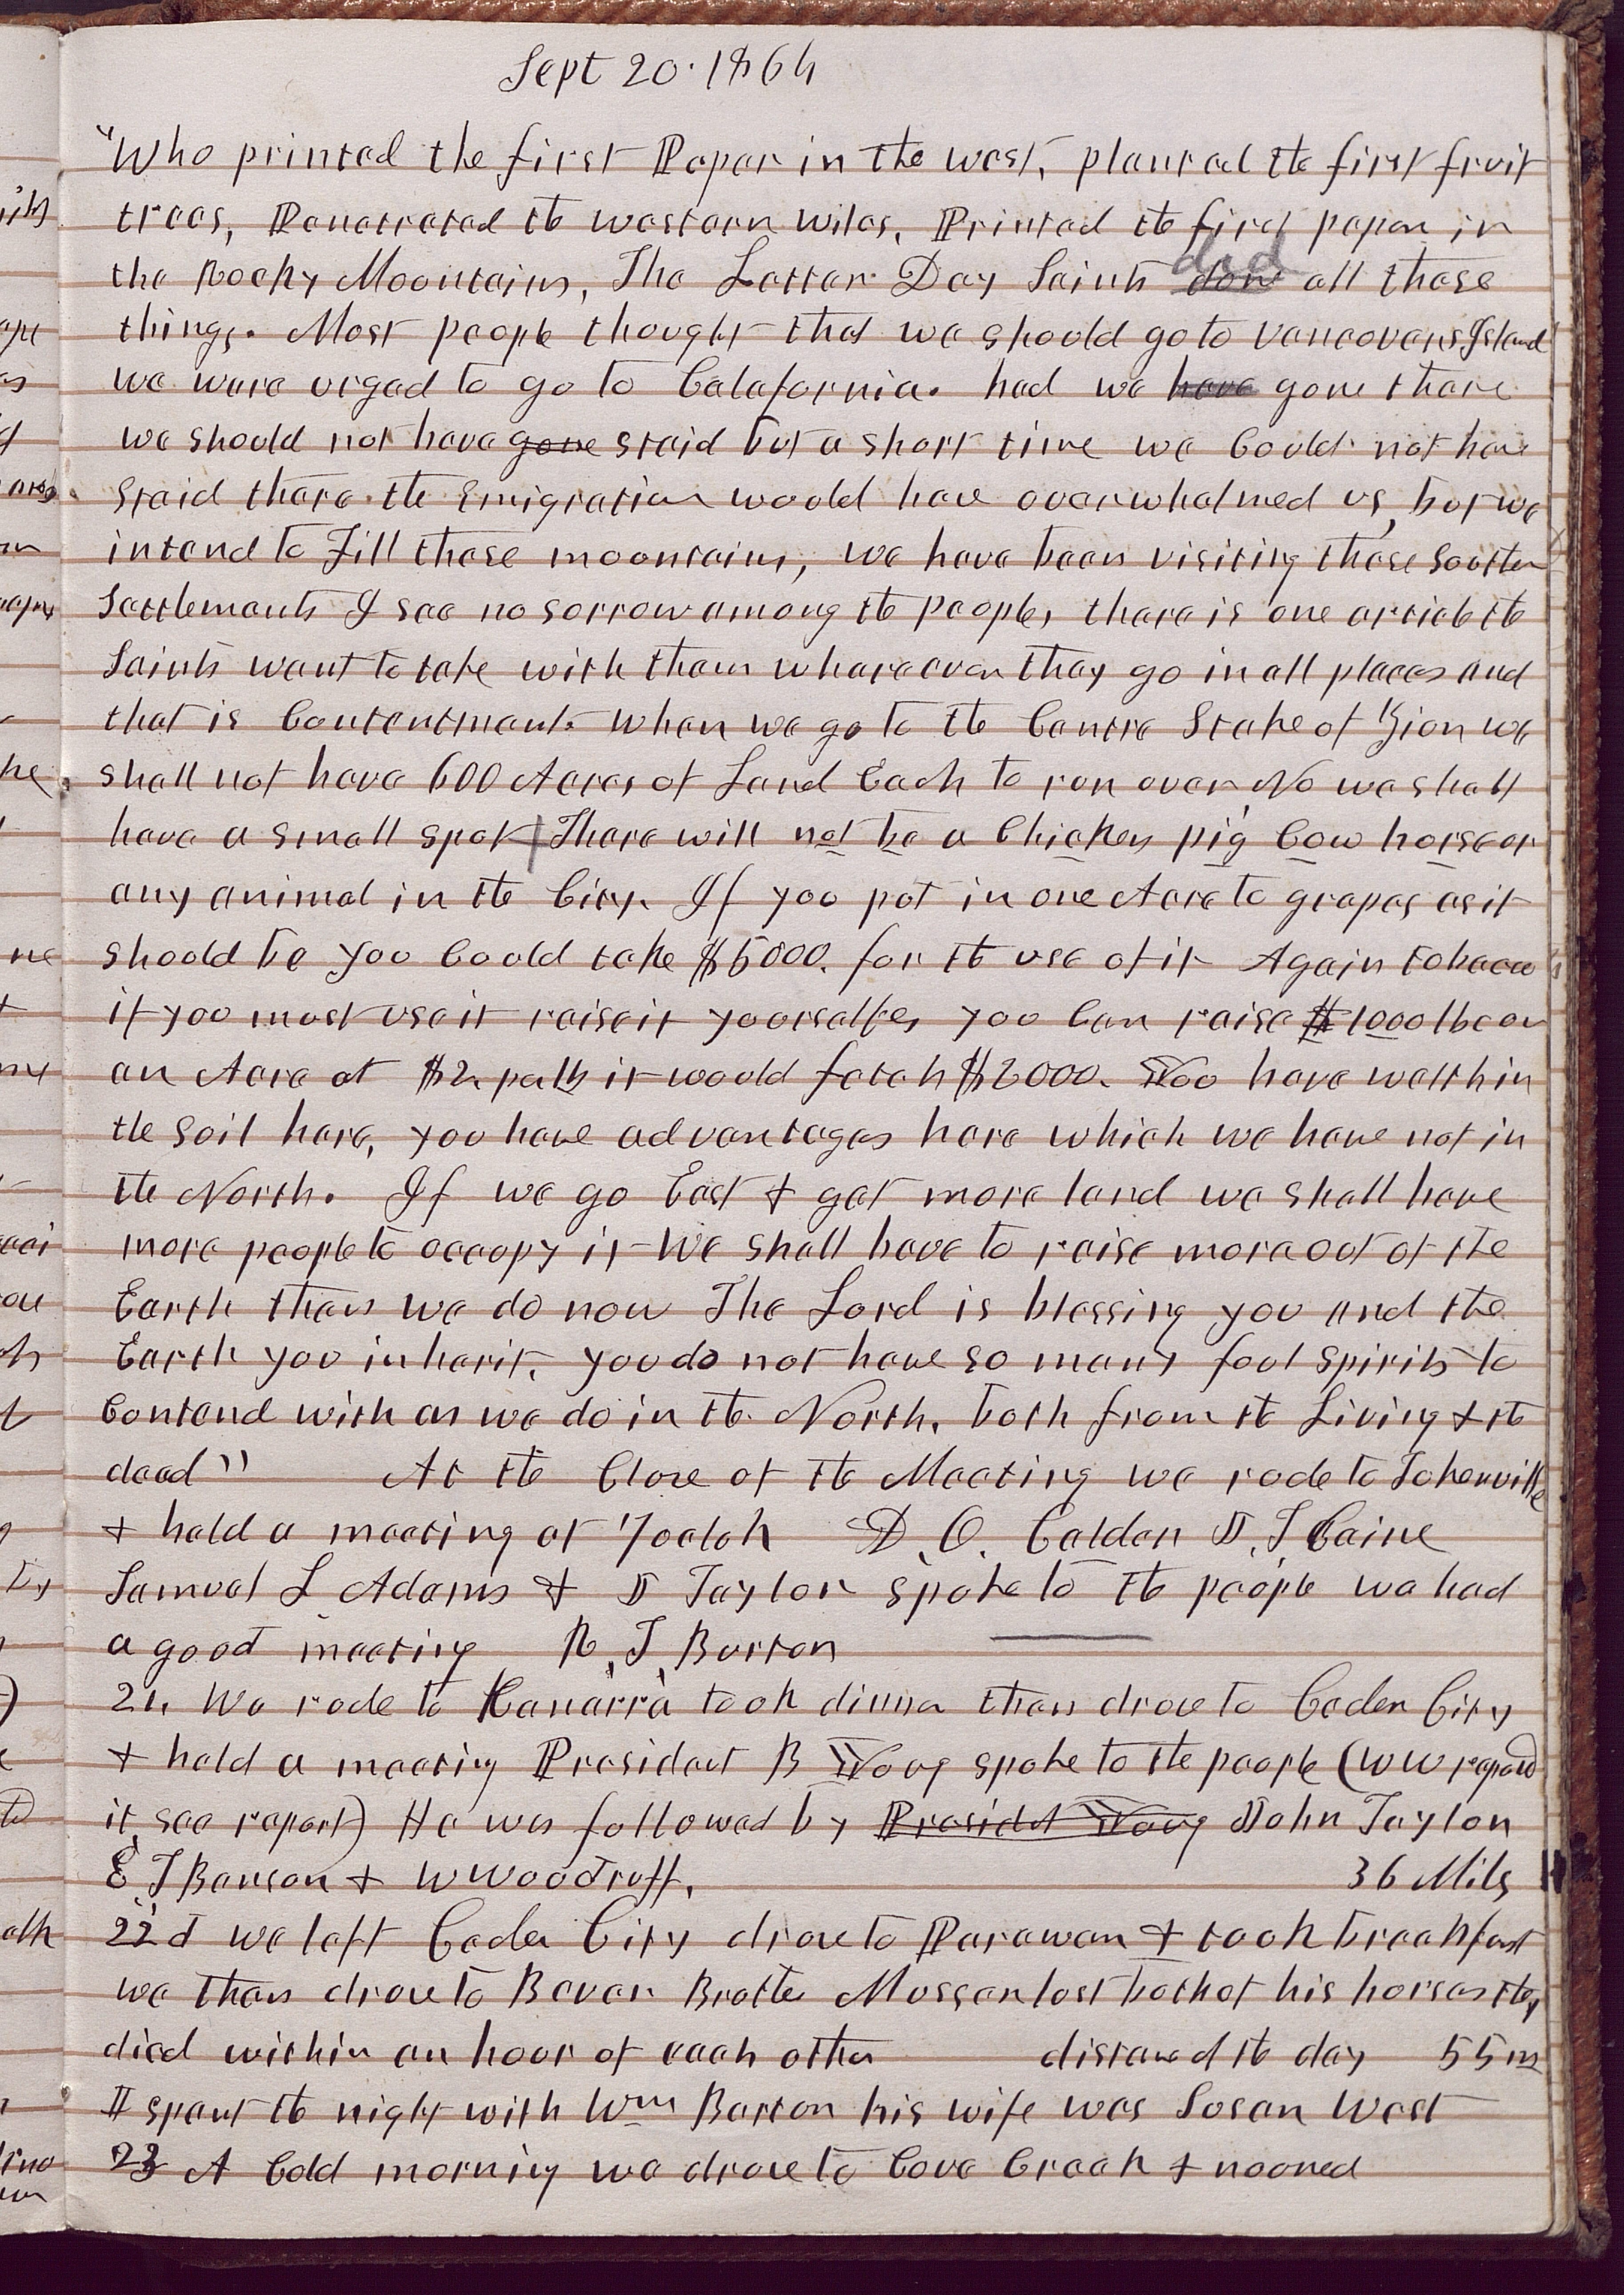 Sept 20. 1864
"Who printed the first Paper in the west, planted the first fruit
trees, Penetrated the western wiles, Printed the first paper in
the Rocky Mountains, The Latter Day Saints done did all these
things. Most people thought that we should go to Vancouvers Island
we were urged to go to Calafornia. had we have gone there
we should not have gone staid but a short time we Could not have
staid there. the Emigration would have overwhelmed us, but we
intend to Fill these mountains, we have been visiting these Southern
Settlements I see no sorrow among the people, there is one article the
Saints want to take with them whareever they go in all places and
that is Contentment. when we go to the Centre Stake of Zion we
shall not have 600 Acres of Land Each to run over No we shall
have a small spot There will not be a Chicken pig Cow horse or
any animal in the City. If you put in one Acre to grapes as it
should be you Could take $5000. for the use of it Again tobacco
if you must use it raise it yourselves you Can raise $ 1000 lb on
an Acre at $2 per lb it would fetch $2000. You have welth in
the soil here, you have advantages here which we have not in
the North. If we go East & get more land we shall have
more people to occupy it We shall have to raise more out of the
Earth than we do now The Lord is blessing you and the
Earth you inherit, you do not have so many foul spirits to
Contend with as we do in the North, both from the Living & the
dead" At the Close of the Meeting we rode to Tokerville
& held a meeting at 7 oclok D. O. Calder J. T Caine
Samuel L Adams & J Taylor spoke to the people we had
a good meeting R. T. Burton
21. We rode to Canarra took dinner then drove to Ceder City
& held a meeting President B Young spoke to the people (WW repord
it see report) He was followed by Presidet Young John Taylor
E T Benson & W Woodruff. 36 Mils
22d we left Ceder City drove to Parawan & took breakfast
we then drove to Bever Brother Musser lost both of his horses they
died within an hour of each other distance of the day 55 m
I spent the night with Wm Barton his wife was Susan West
23 A Cold morning we drove to Cove Creek & nooned